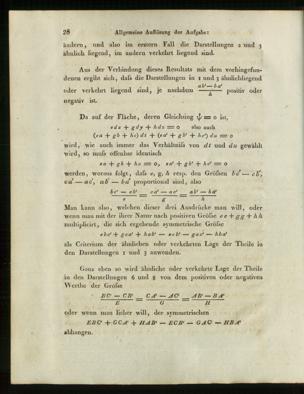 28 Allgemeine Auflösung der Aufgabe:
ändern, und also im erstern Fall die Darstellungen 1 und 3
ähnlich liegend, im andern verkehrt liegend sind.
Aus der Verbindung dieses Resultats mit dem vorhingefun-
denen ergibt sich, daß die Darstellungen in 1 und 3 ähnlichliegend
oder verkehrt liegend sind, je nachdem (ab' — ba')/h positiv oder
negativ ist.
Da auf der Fläche, deren Gleichung ψ = 0 ist,
edx + gdy + hdz = 0 also auch
(ea + gb + hc) dt + (ea' + gb' + hc') du = 0
wird, wie auch immer das Verhältniß von dt und du gewählt
wird, so muß offenbar identisch
ea + gb + hc = 0, ea' + gb' + hc' = 0
werden, woraus folgt, daß e, g, h resp. den Größen bc' — cb',
ca' — ac', ab' — ba' proportional sind, also
(bc' — cb')/e = (ca' — ac')/g = (ab' — ba')/h
Man kann also, welchen dieser drei Ausdrücke man will, oder
wenn man mit der ihrer Natur nach positiven Größe ee + gg + hh
multiplicirt, die sich ergebende symmetrische Größe
ebc' + gca' + hab' — ecb' — gac' — hba'
als Criterium der ähnlichen oder verkehrten Lage der Theile in
den Darstellungen 1 und 3 anwenden.
Ganz eben so wird ähnliche oder verkehrte Lage der Theile
in den Darstellungen 6 und 2 von dem positiven oder negativen
Werthe der Größe
(BC' — CB')/E = (CA' — AC')/G = (AB' — BA')/H
oder wenn man lieber will, der symmetrischen
EBC' + GCA' + HAB' — ECB' — GAC' — HBA'
abhangen.